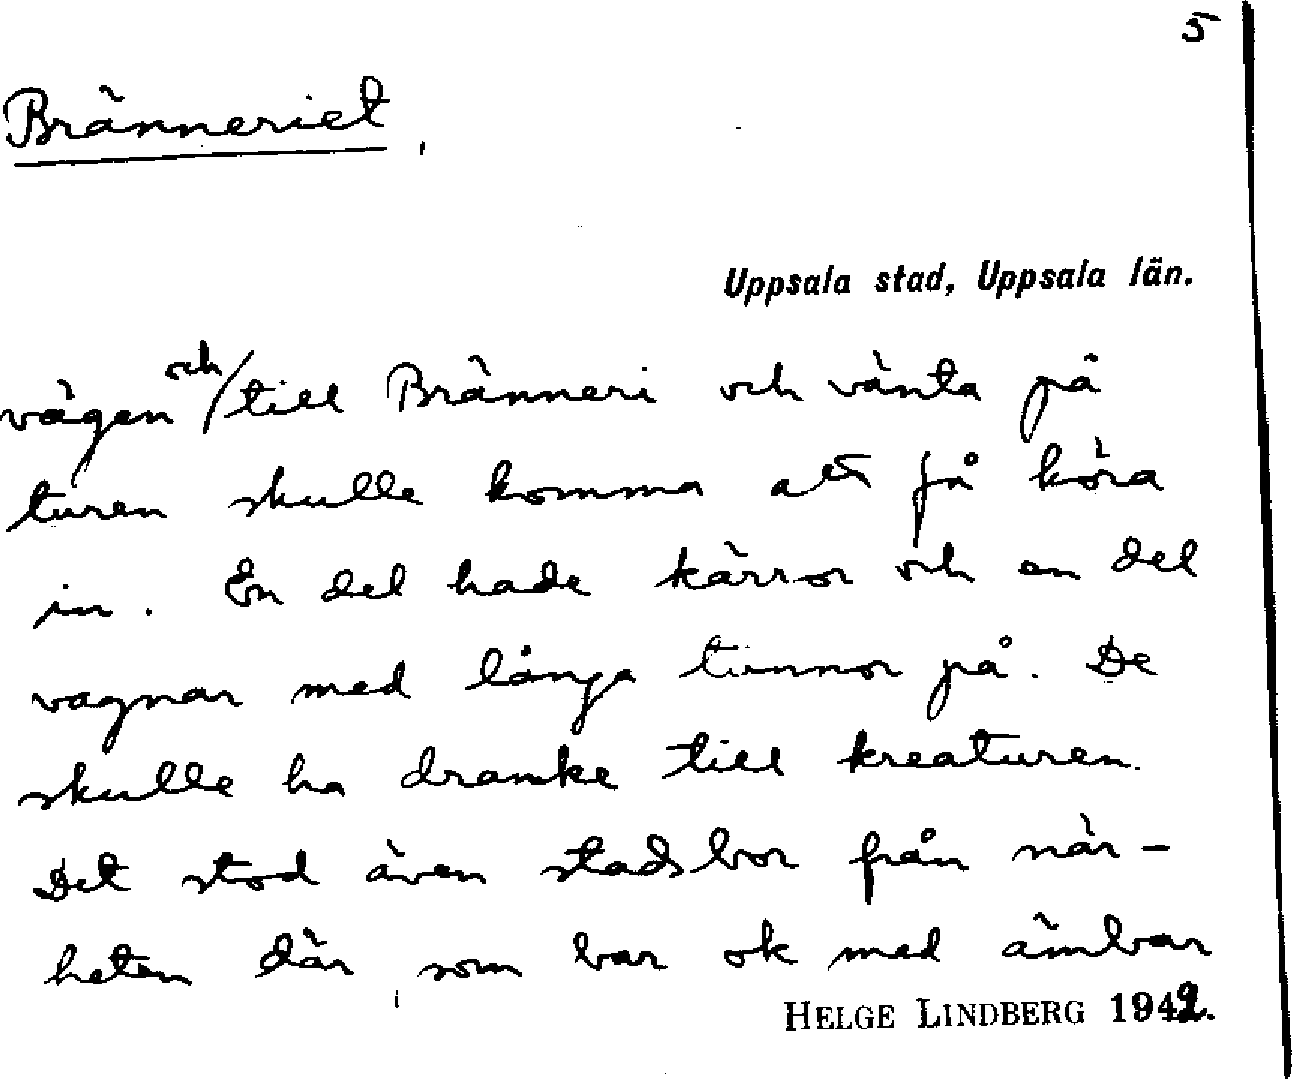 5
Bränneriet
Uppsala stad, Uppsala län.
vägen och/till Bränneri och vänta på
turen skulle komma att få köra
in. En del hade kärror och en del
vagnar med långa tunnor på. De
skulle ha dranke till kreaturen.
Det stod även stadsbor från när-
heten där som bar ok med ämbar
HELGE LINDBERG 1942.